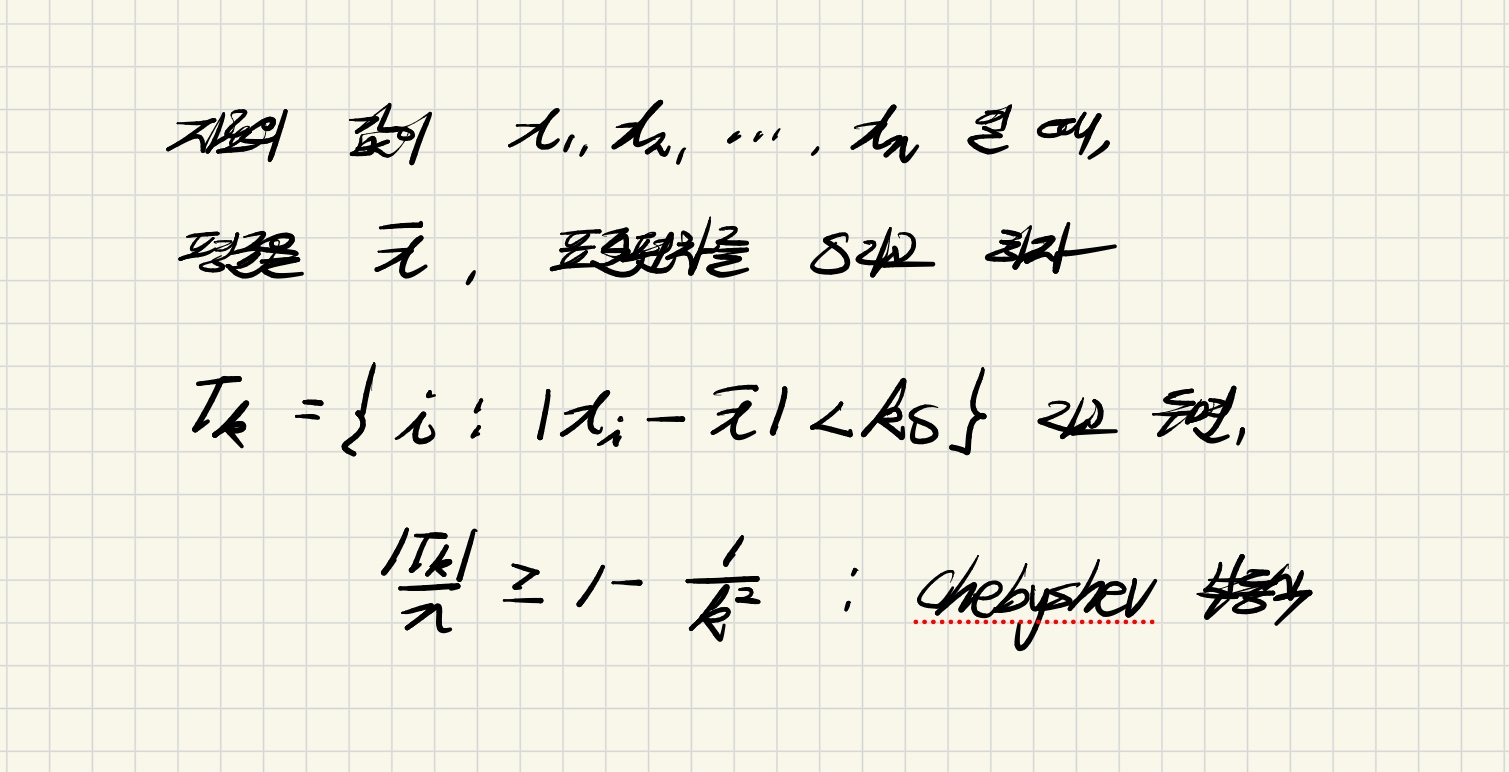 자료의 값이 x₁, x₂, ⋯, xₙ 일 때,
평균은 x̄, 표준편차를 s라 하자
Tₖ = { i : |xᵢ − x̄| < ks } 라 두면,
|Tₖ|/n ≥ 1 − 1/k² : Chebyshev 부등식